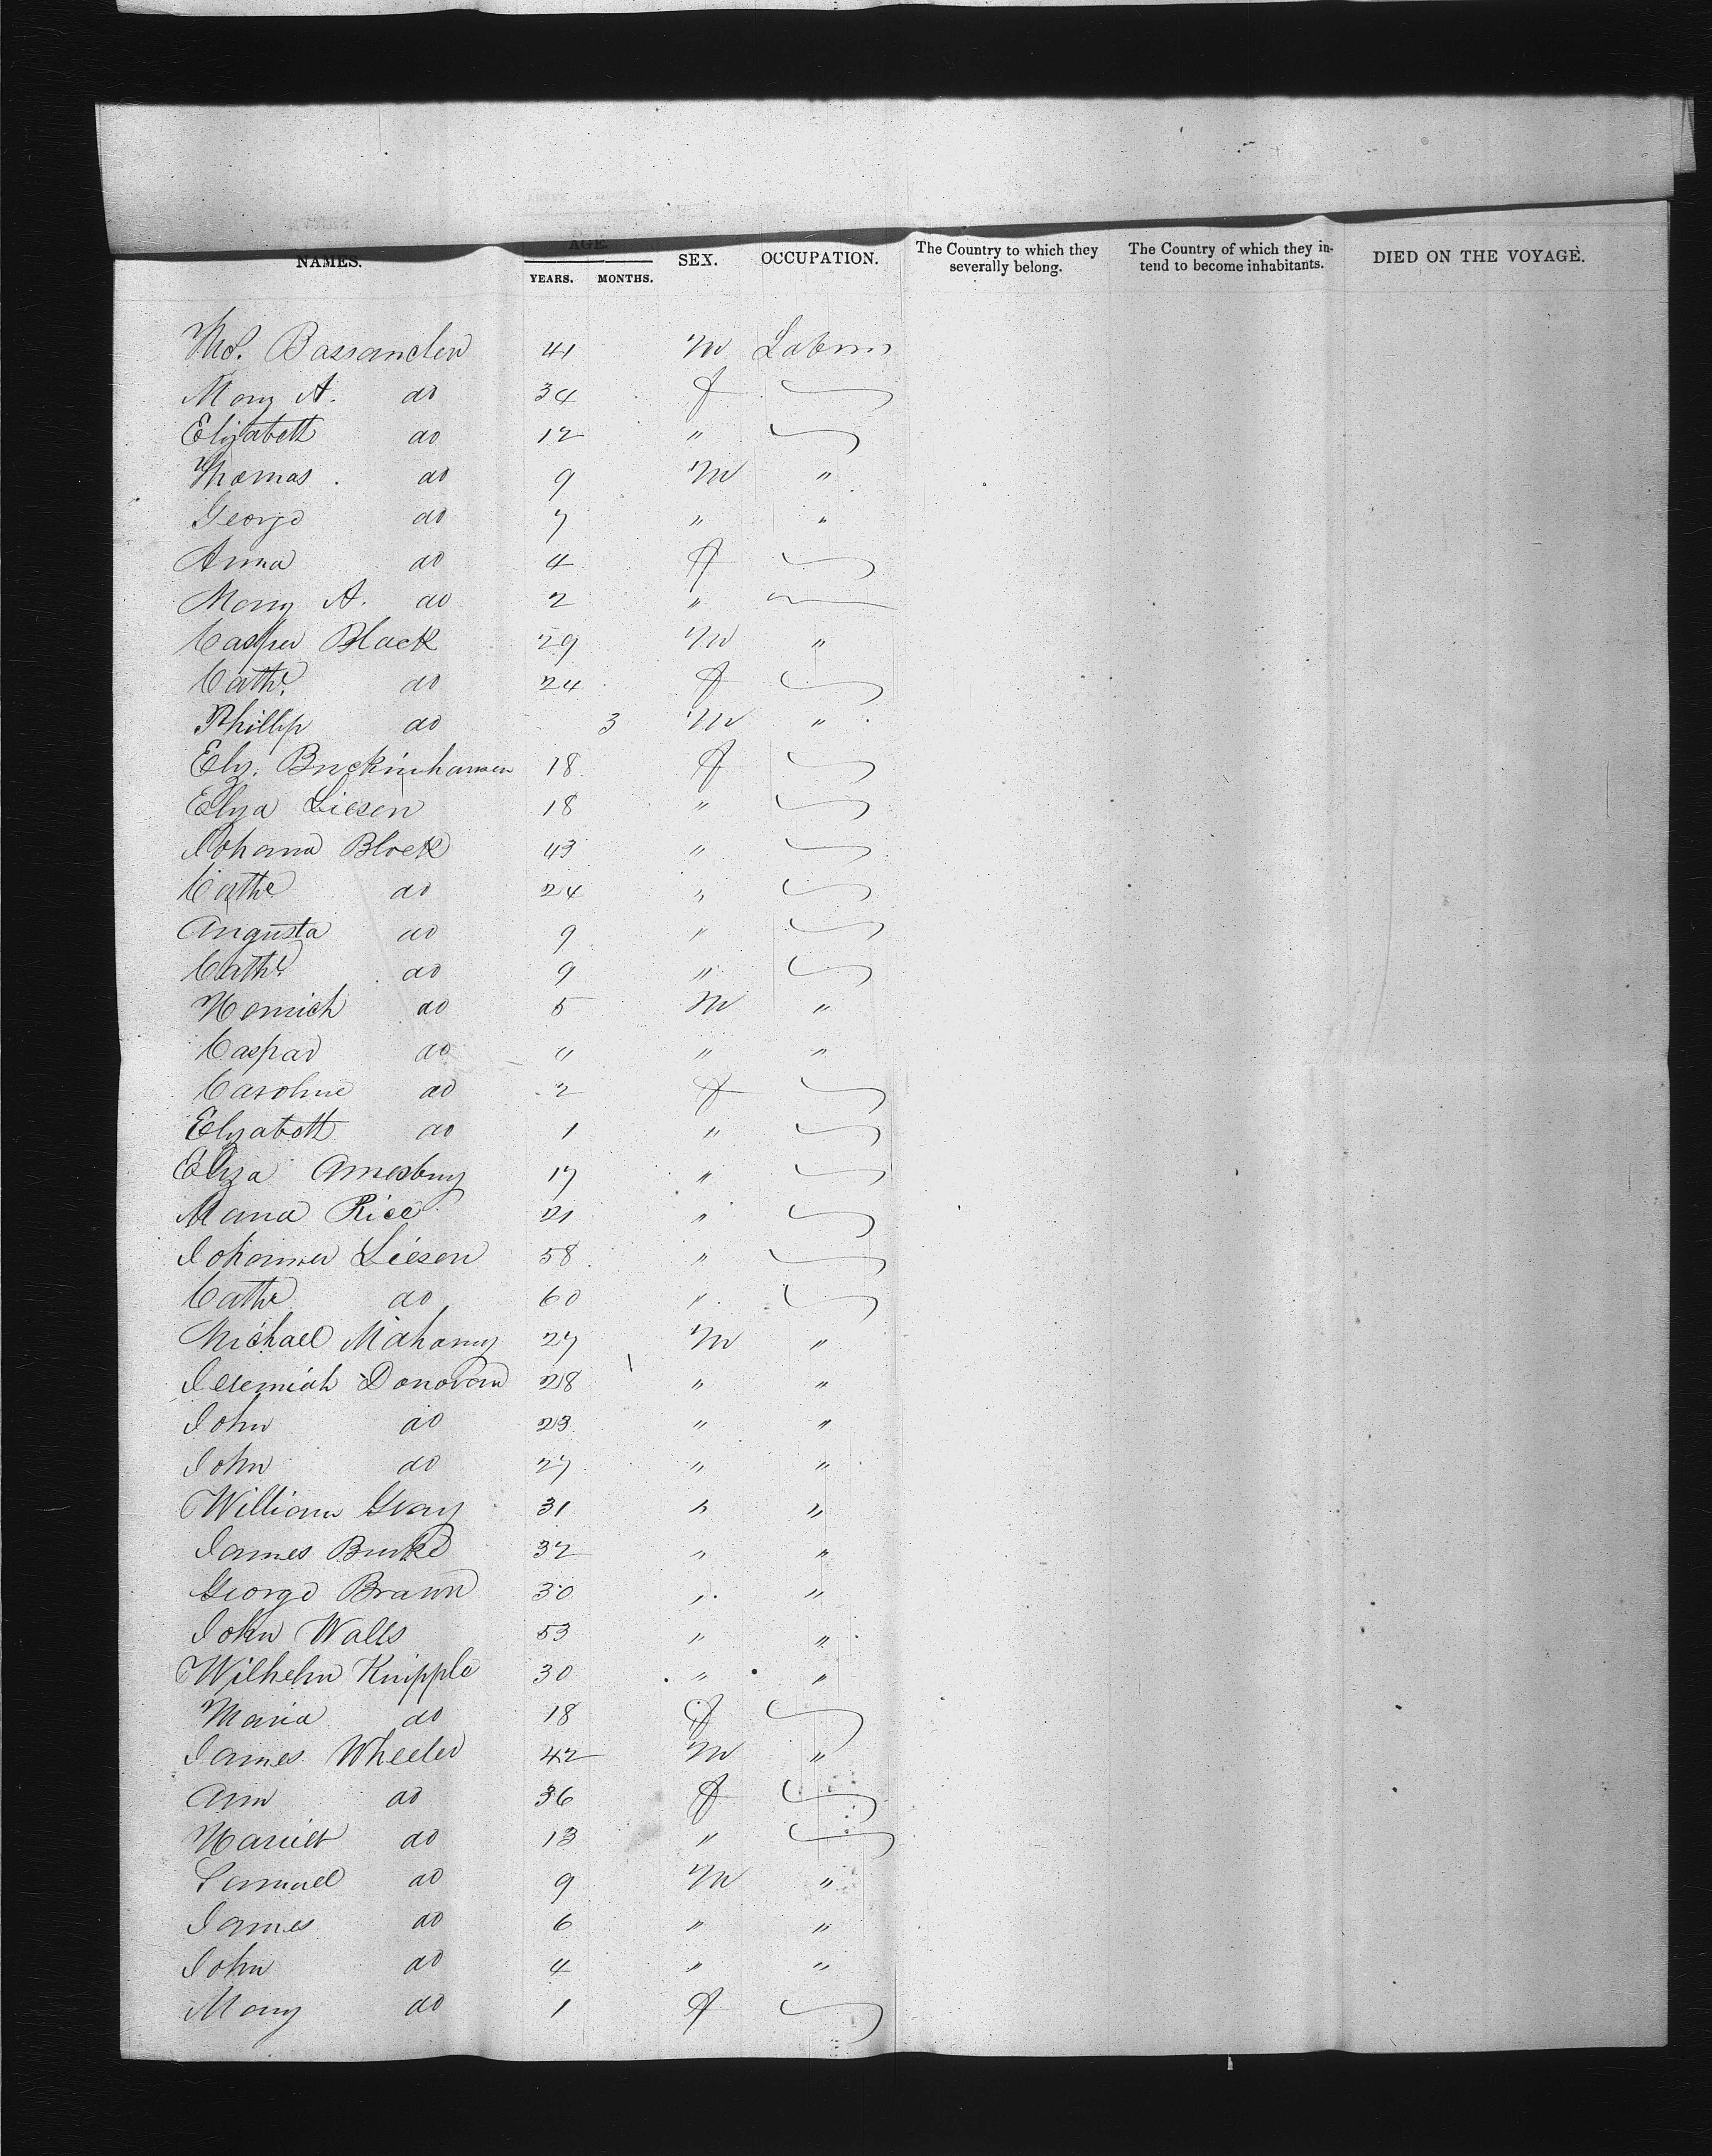 NAMES. AGE. YEARS. MONTHS. SEX. OCCUPATION. The Country to which they severally belong. The Country of which they intend to become inhabitants. DIED ON THE VOYAGE.
Tho.s 41 M
Mary A. do 34 f
Elizabeth do 12 "
Thomas do 9 M "
George do 7 " "
Anna do 4 f
Mary A. do 2 "
Casper Black 29 M "
Cathe. do 24 f
Phillip do 3 M "
Elz. 18 f
Elyza Liesen 18 "
Johana Block 43 "
Cathe do 24 "
Augusta do 9 "
Cathe do 9 "
Henrich do 5 M "
Caspar do " " "
Caroline do 2 f
Elyzabeth do 1 "
Eliza Amesbury 17 "
Maria Rice 21 "
Johanna Liesen 58 "
Cathe do 60 "
Michael Mahany 27 M "
Jeremiah Donovan 28 " "
John do 23 " "
John do 27 " "
William Gray 31 " "
James Burke 32 " "
George Brawn 30 " "
John Walls 53 " "
Wilhelm Knipple 30 " "
Maria do 18 f
James Wheeler 42 M "
Ann do 36 f
Harriet do 13 "
Samuel do 9 M "
James do 6 " "
John do 4 " "
Mary do 1 f